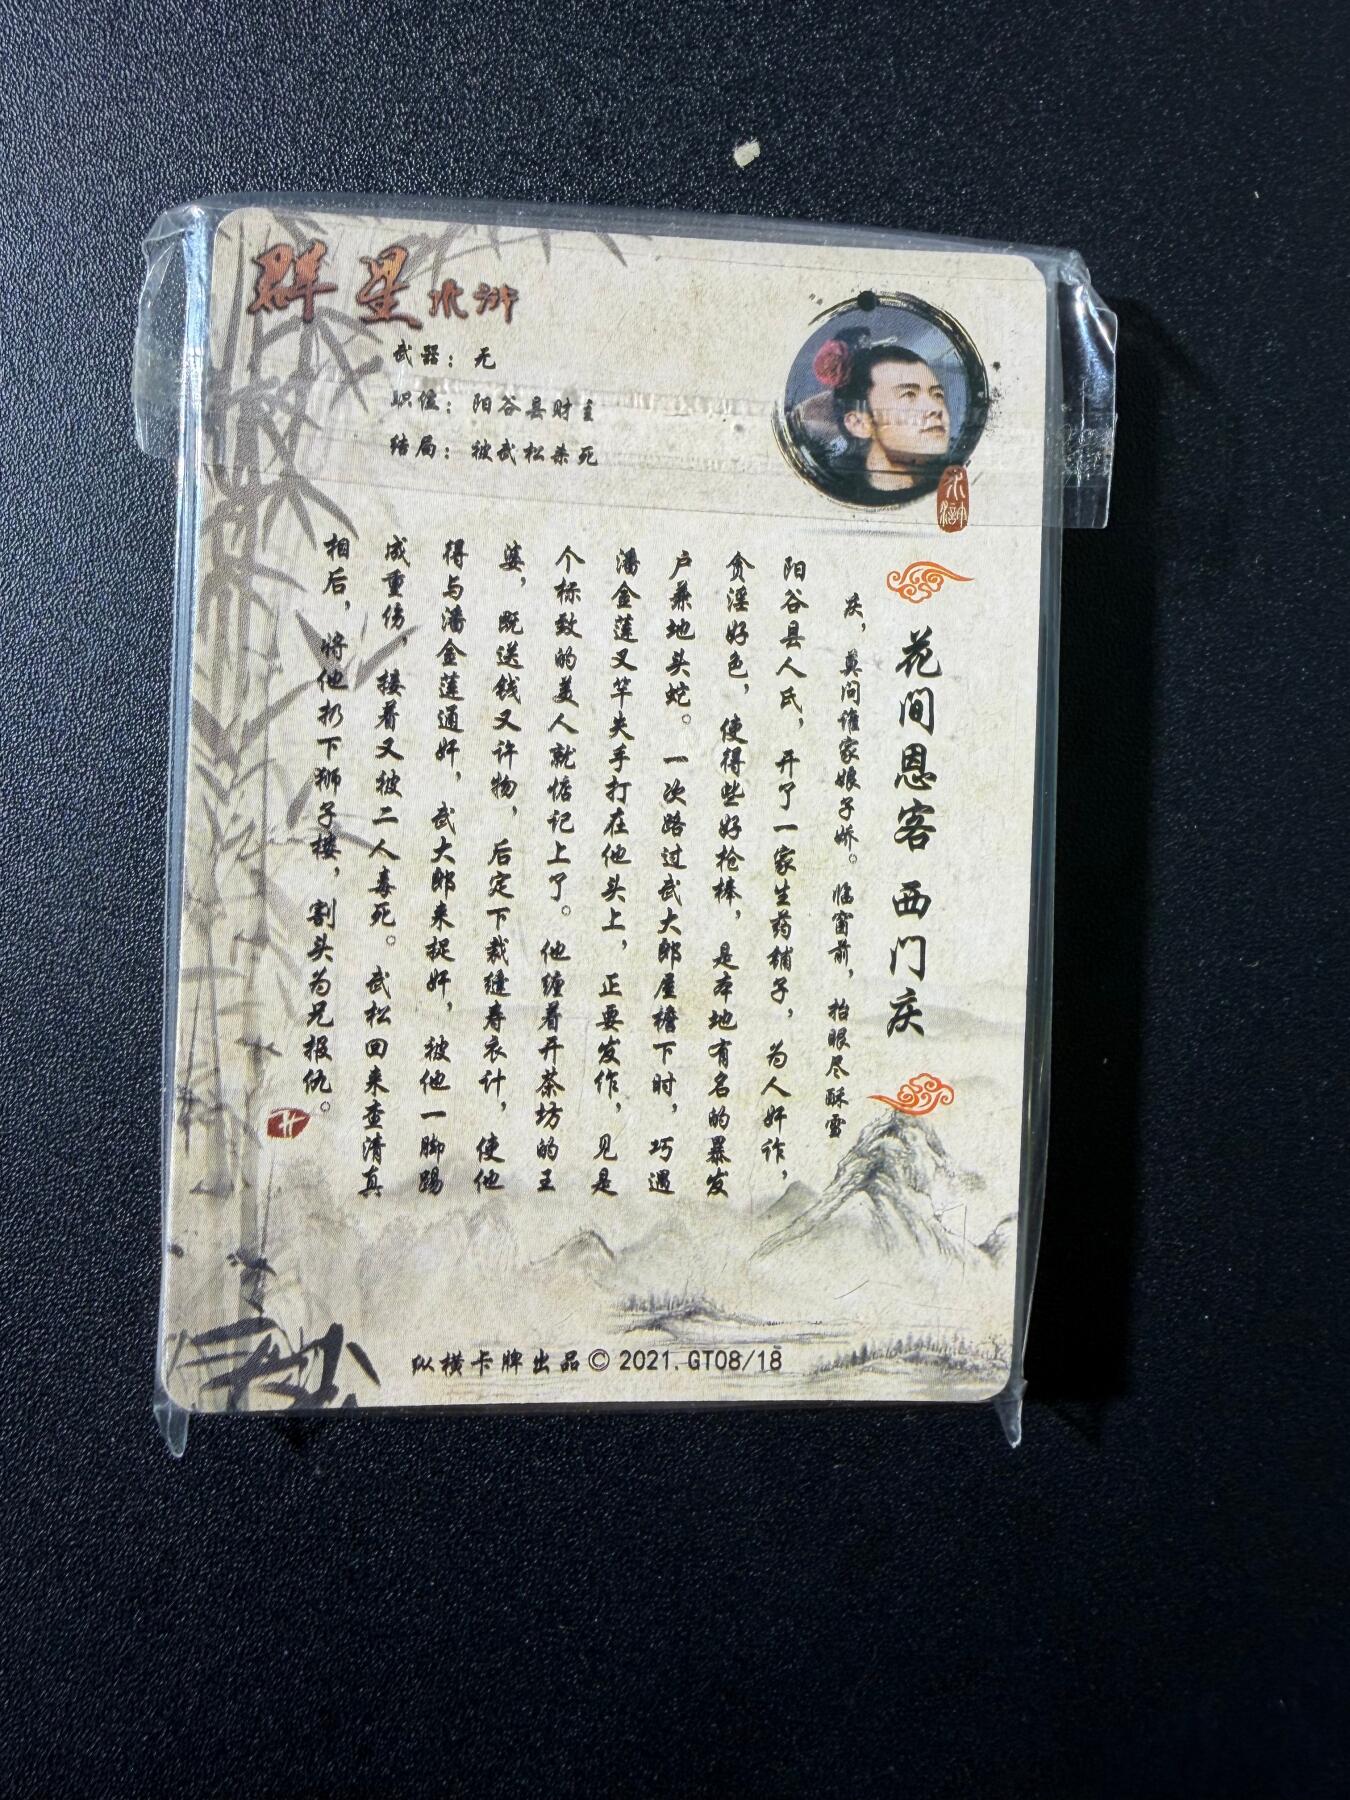 群星水浒
武器：无
职位：阳谷县财主
结局：被武松杀死
水浒
花间恩客 西门庆
庆，莫问谁家娘子娇。临窗前，抬眼尽酥雪
阳谷县人氏，开了一家生药铺子，为人奸诈，
贪淫好色，使得些好枪棒，是本地有名的暴发
户兼地头蛇。一次路过武大郎屋檐下时，巧遇
潘金莲叉竿失手打在他头上，正要发作，见是
个标致的美人就惦记上了。他缠着开茶坊的王
婆，既送钱又许物，后定下裁缝寿衣计，使他
得与潘金莲通奸，武大郎来捉奸，被他一脚踢
成重伤，接着又被二人毒死。武松回来查清真
相后，将他扔下狮子楼，割头为兄报仇。
纵横卡牌出品©2021.GT08/18